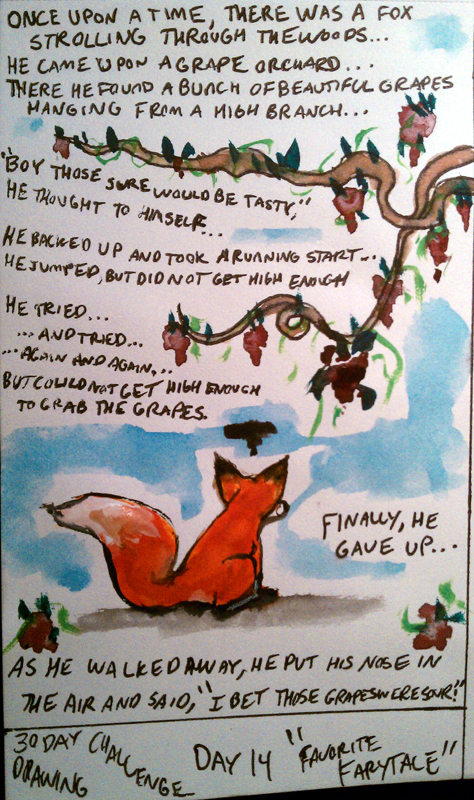 ONCE UPON A TIME, THERE WAS A FOX
STROLLING THROUGH THE WOODS...
HE CAME UPON A GRAPE ORCHARD...
THERE HE FOUND A BUNCH OF BEAUTIFUL GRAPES
HANGING FROM A HIGH BRANCH...
"BOY THOSE SURE WOULD BE TASTY,"
HE THOUGHT TO HIMSELF...
HE BACKED UP AND TOOK A RUNNING START...
HE JUMPED, BUT DID NOT GET HIGH ENOUGH
HE TRIED...
...AND TRIED...
...AGAIN AND AGAIN,..
BUT COULD NOT GET HIGH ENOUGH
TO GRAB THE GRAPES.
FINALLY, HE
GAVE UP...
AS HE WALKED AWAY, HE PUT HIS NOSE IN
THE AIR AND SAID, "I BET THOSE GRAPES WERE SOUR!"
30 DAY CHALLENGE
DRAWING
DAY 14 "FAVORITE
FARYTALE"